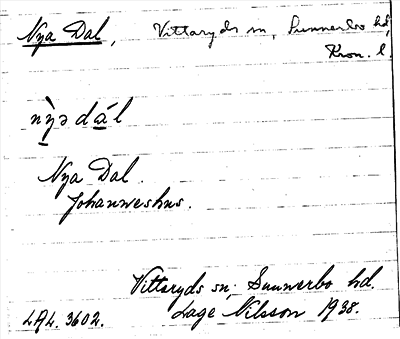 Nya Dal, Vittaryds sn, Sunnerbo hd,
Kron. l.
nỳə dál
Nya Dal.
Johanneshus.
Vittaryds sn, Sunnerbo hd.
LAL. 3602. Lage Nilsson 1938.